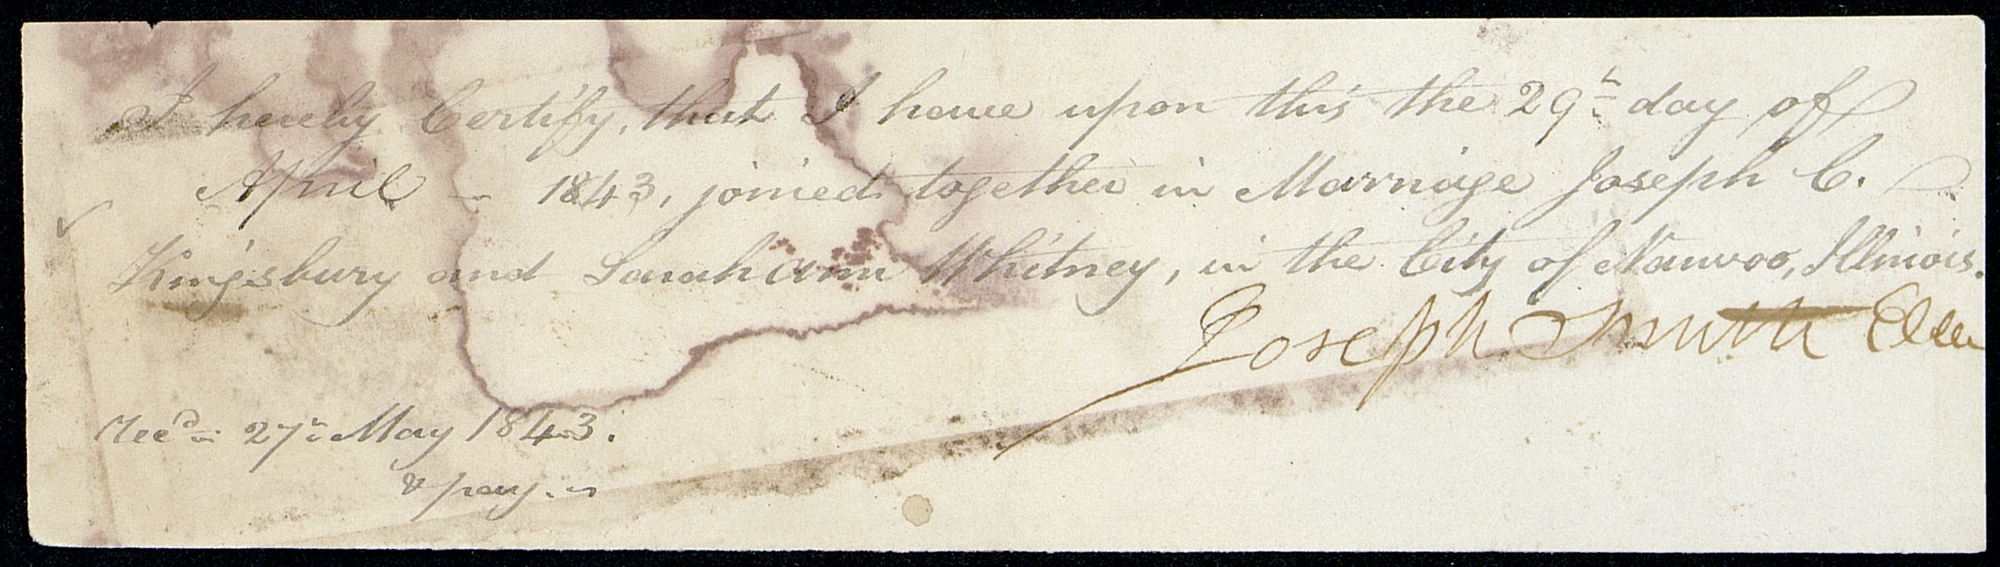 I hereby Certify, that I have upon this the 29th day of
April – 1843, joined together in Marriage Joseph C.
Kingsbury and Sarah Ann Whitney, in the City of Nauvoo, Illinois.
Joseph Smith Elder
Recd 27th May 1843.
& pay.